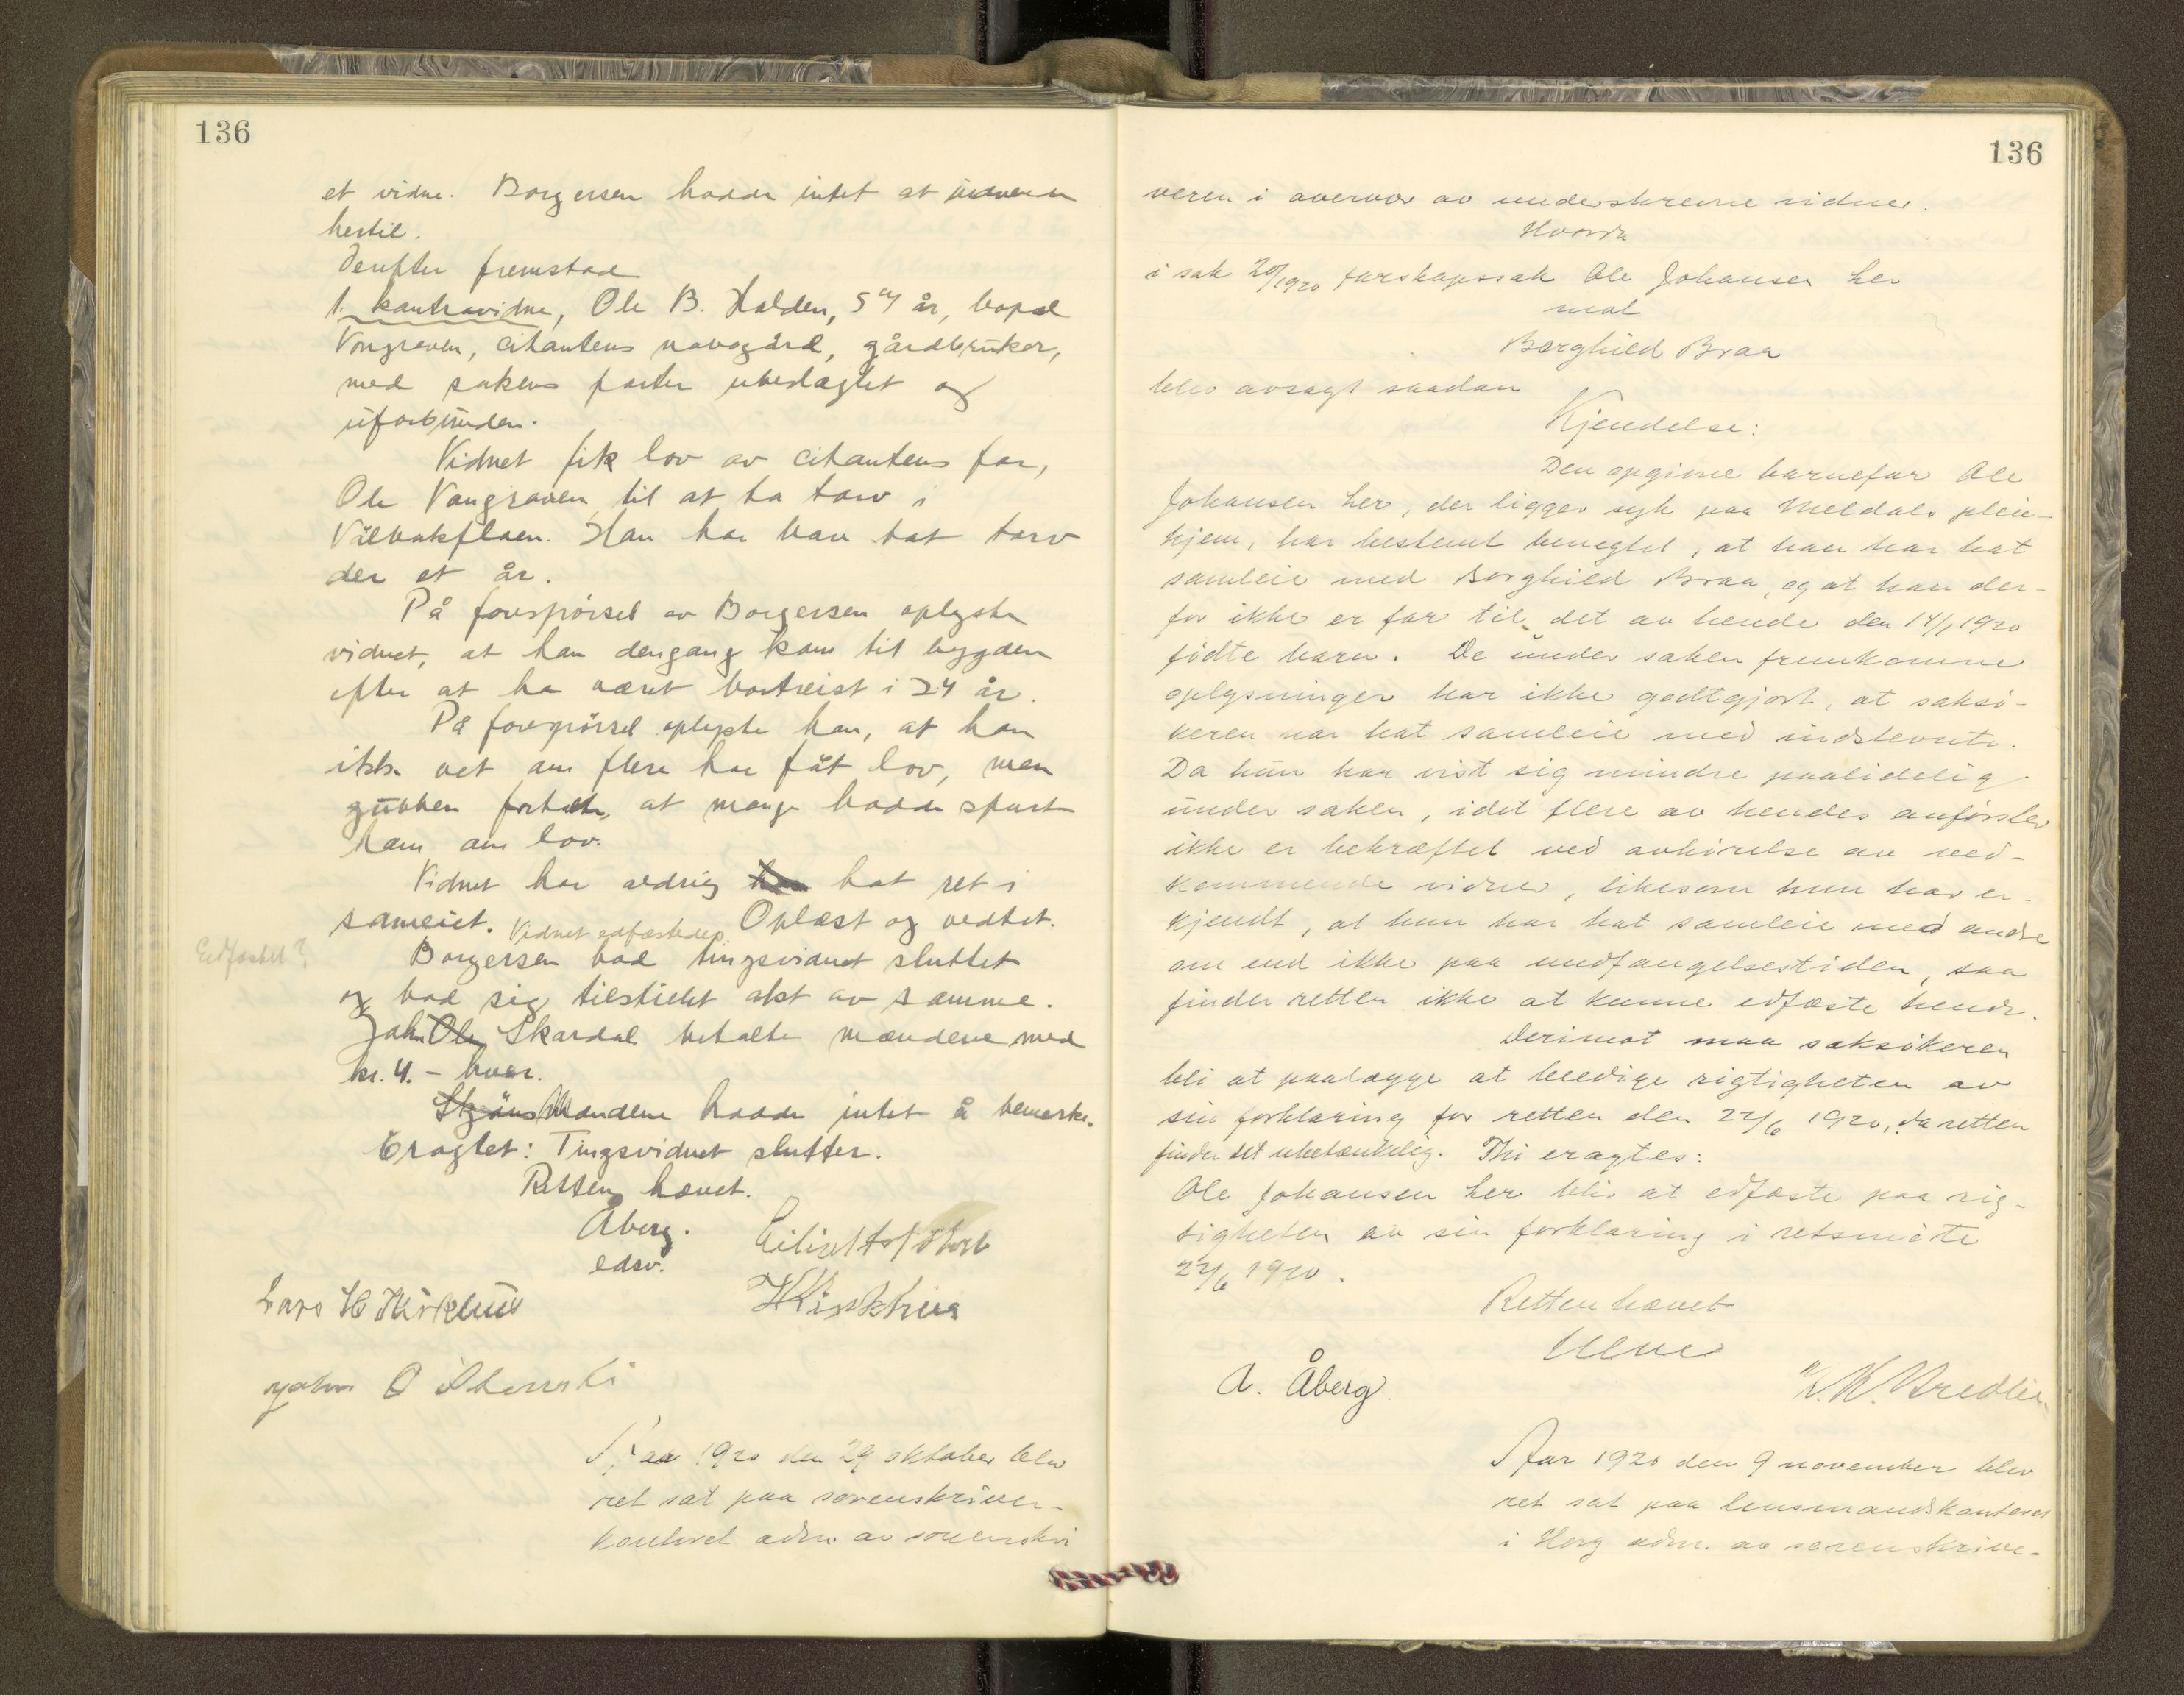 136
et vidne. Borgersen hadde intet at indvende
hertil.
Derefter fremstod
1. kontravidne, Ole B. Halden, 54 år, bopæl
Vongraven, citantens nabogård, gårdbruker,
med sakens parter ubeslægtet og
uforbunden.
Vidnet fik lov av citantens far,
Ole Vongraven til at ta torv i
Vålbakfloen. Han har bare tat torv
der et år.
På forespørsel av Borgersen oplyste
vidnet, at han dengang kom til bygden
efter at ha været bortreist i 24 år.
På forespørsel oplyste han, at han
ikke vet om flere har fåt lov, men
gubben fortalte, at mange hadde spurt
ham om lov.
Vidnet har aldrig har hat ret i
sameiet. Vidnet edfæstedes. Oplæst og vedtat.
Edfæstet?
Borgersen bad tingsvidnet sluttet
og bad sig tilstillet akt av samme.
John Ole Skardal betalte mændene med
kr. 4.- hver.
Mændene hadde intet å bemerke.
Eragtet: Tingsvidnet slutter.
Retten hævet.
Åberg.
edsv.
Lars H Kirkhus
John O
I aar 1920 den 29 oktober blev
ret sat paa sorenskriver-
kontoret adm. av sorenskri
136
veren i overvær av underskrevne vidner.
Hvorda
i sak 20/1920 farskapssak Ole Johansen Ler
mot
Borghild Braa
blev avsagt saadan
Kjendelse:
Den opgivne barnefar Ole
Johansen Ler, der ligger syk paa Meldals pleie-
hjem, har bestemt benegtet, at han har hat
samleie med Borghild Braa, og at han der-
for ikke er far til det av hende den 14/1 1920
fødte barn. De under saken fremkomne
oplysninger har ikke godtgjort, at saksø-
keren har hat samleie med indstevnte.
Da hun har vist sig mindre paalidelig
under saken, idet flere av hendes anførsler
ikke er bekræftet ved avhørelse av ved-
kommende vidner, likesom hun har er-
kjendt, at hun har hat samleie med andre
om end ikke paa undfangelsestiden, saa
finder retten ikke at kunne edfæste hende.
Derimot maa saksøkeren
bli at paalægge at beedige rigtigheten av
sin forklaring for retten den 22/6 1920, da retten
finder det ubetænkelig. Thi eragtes:
Ole Johansen Ler blir at edfæste paa rig-
tigheten av sin forklaring i retsmøte
22/6 1920.
Retten hævet
A. Åberg.
K. Bredli
I aar 1920 den 9 november blev
ret sat paa lensmandskontoret
i Horg adm. av sorenskrive-